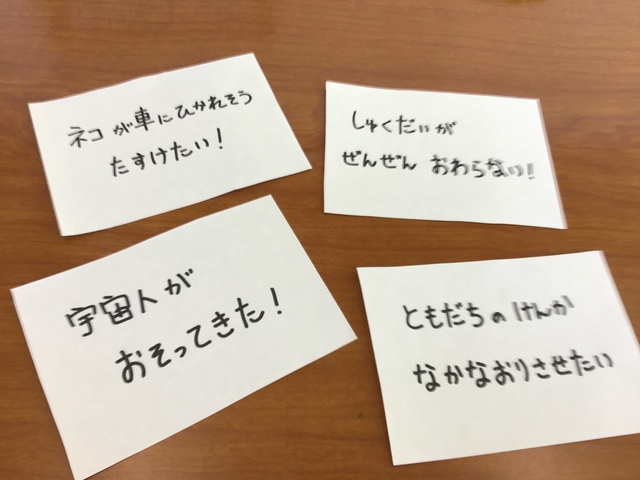 ネコが車にひかれそう
たすけたい!
しゅくだいが
ぜんぜん おわらない!
宇宙人が
おそってきた!
ともだちのけんか
なかなおりさせたい